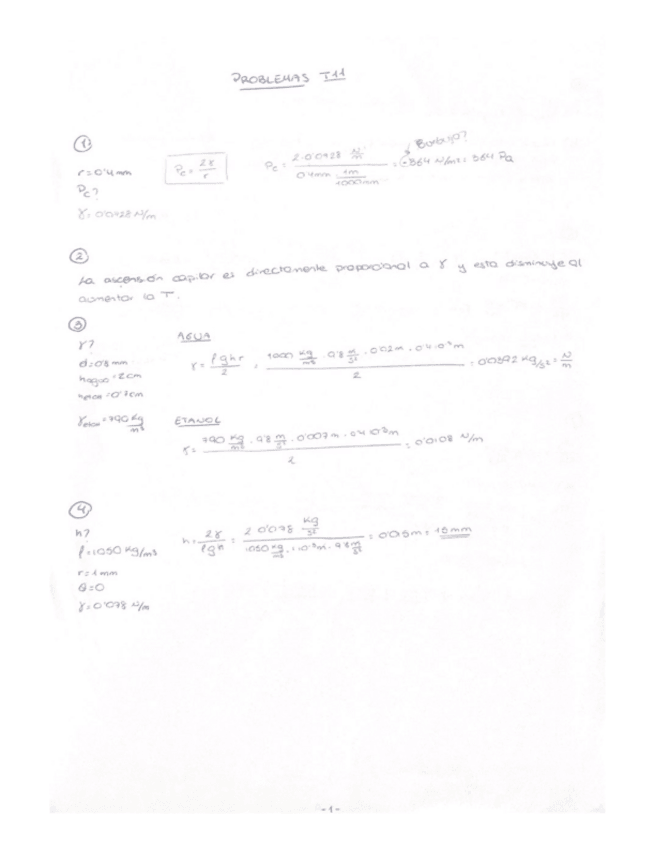 PROBLEMAS T11
①
r = 0'4 mm
Pc?
γ = 0'0728 N/m
Pc = 2γ / r
Pc = 2·0'0728 N/m / 0'4mm · 1m/1000mm = 364 N/m² = 364 Pa
②
La ascensión capilar es directamente proporcional a γ y esta disminuye al
aumentar la T.
③
γ?
d = 0'8 mm
hagua = 2cm
= 0'7cm
= 790 Kg/m³
AGUA
γ = ρghr / 2 = 1000 Kg/m³ · 9'8 m/s² · 0'02m · 0'4·10⁻³m / 2 = 0'0392 Kg/s² = N/m
ETANOL
γ = 790 Kg/m³ · 9'8 m/s² · 0'007m · 0'4·10⁻³m / 2 = 0'0108 N/m
④
h?
ρ = 1050 Kg/m³
r = 1 mm
θ = 0
γ = 0'078 N/m
h = 2γ / ρgR = 2·0'078 Kg/s² / 1050 Kg/m³ · 1·10⁻³m · 9'8 m/s² = 0'015m = 15mm
-1-